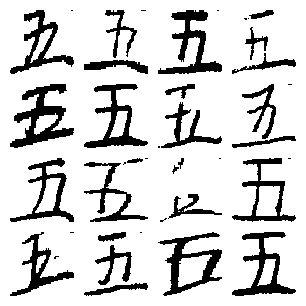 五五五五
五五五五
五五五
五五五五